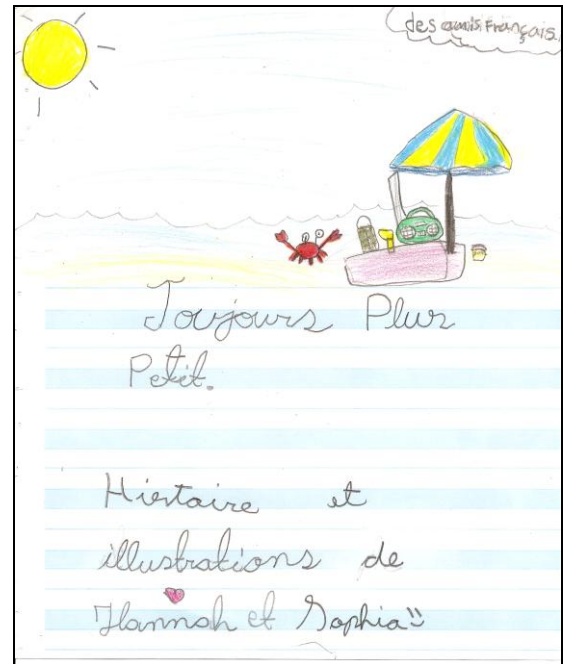 des amis Français.
Toujours Plus
Petit.
Histoire et
illustrations de
Hannah et Sophia